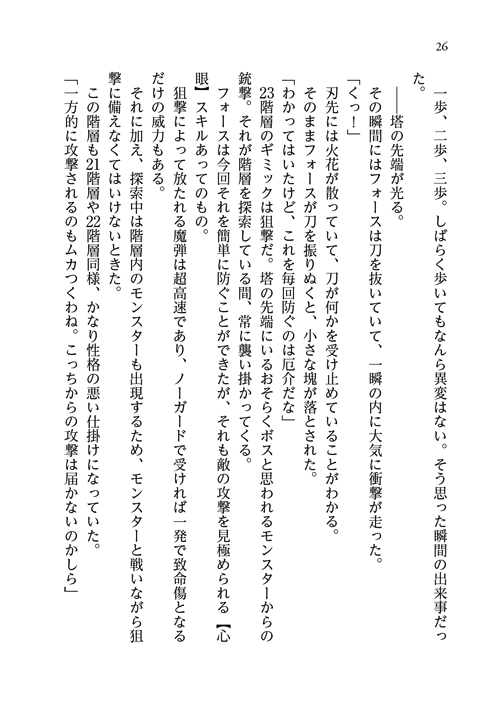 26
一歩、二歩、三歩。しばらく歩いてもなんら異変はない。そう思った瞬間の出来事だっ
た。
――塔の先端が光る。
その瞬間にはフォースは刀を抜いていて、一瞬の内に大気に衝撃が走った。
「くっ！」
刃先には火花が散っていて、刀が何かを受け止めていることがわかる。
そのままフォースが刀を振りぬくと、小さな塊が落とされた。
「わかってはいたけど、これを毎回防ぐのは厄介だな」
23階層のギミックは狙撃だ。塔の先端にいるおそらくボスと思われるモンスターからの
銃撃。それが階層を探索している間、常に襲い掛かってくる。
フォースは今回それを簡単に防ぐことができたが、それも敵の攻撃を見極められる【心
眼】スキルあってのもの。
狙撃によって放たれる魔弾は超高速であり、ノーガードで受ければ一発で致命傷となる
だけの威力もある。
それに加え、探索中は階層内のモンスターも出現するため、モンスターと戦いながら狙
撃に備えなくてはいけないときた。
この階層も21階層や22階層同様、かなり性格の悪い仕掛けになっていた。
「一方的に攻撃されるのもムカつくわね。こっちからの攻撃は届かないのかしら」